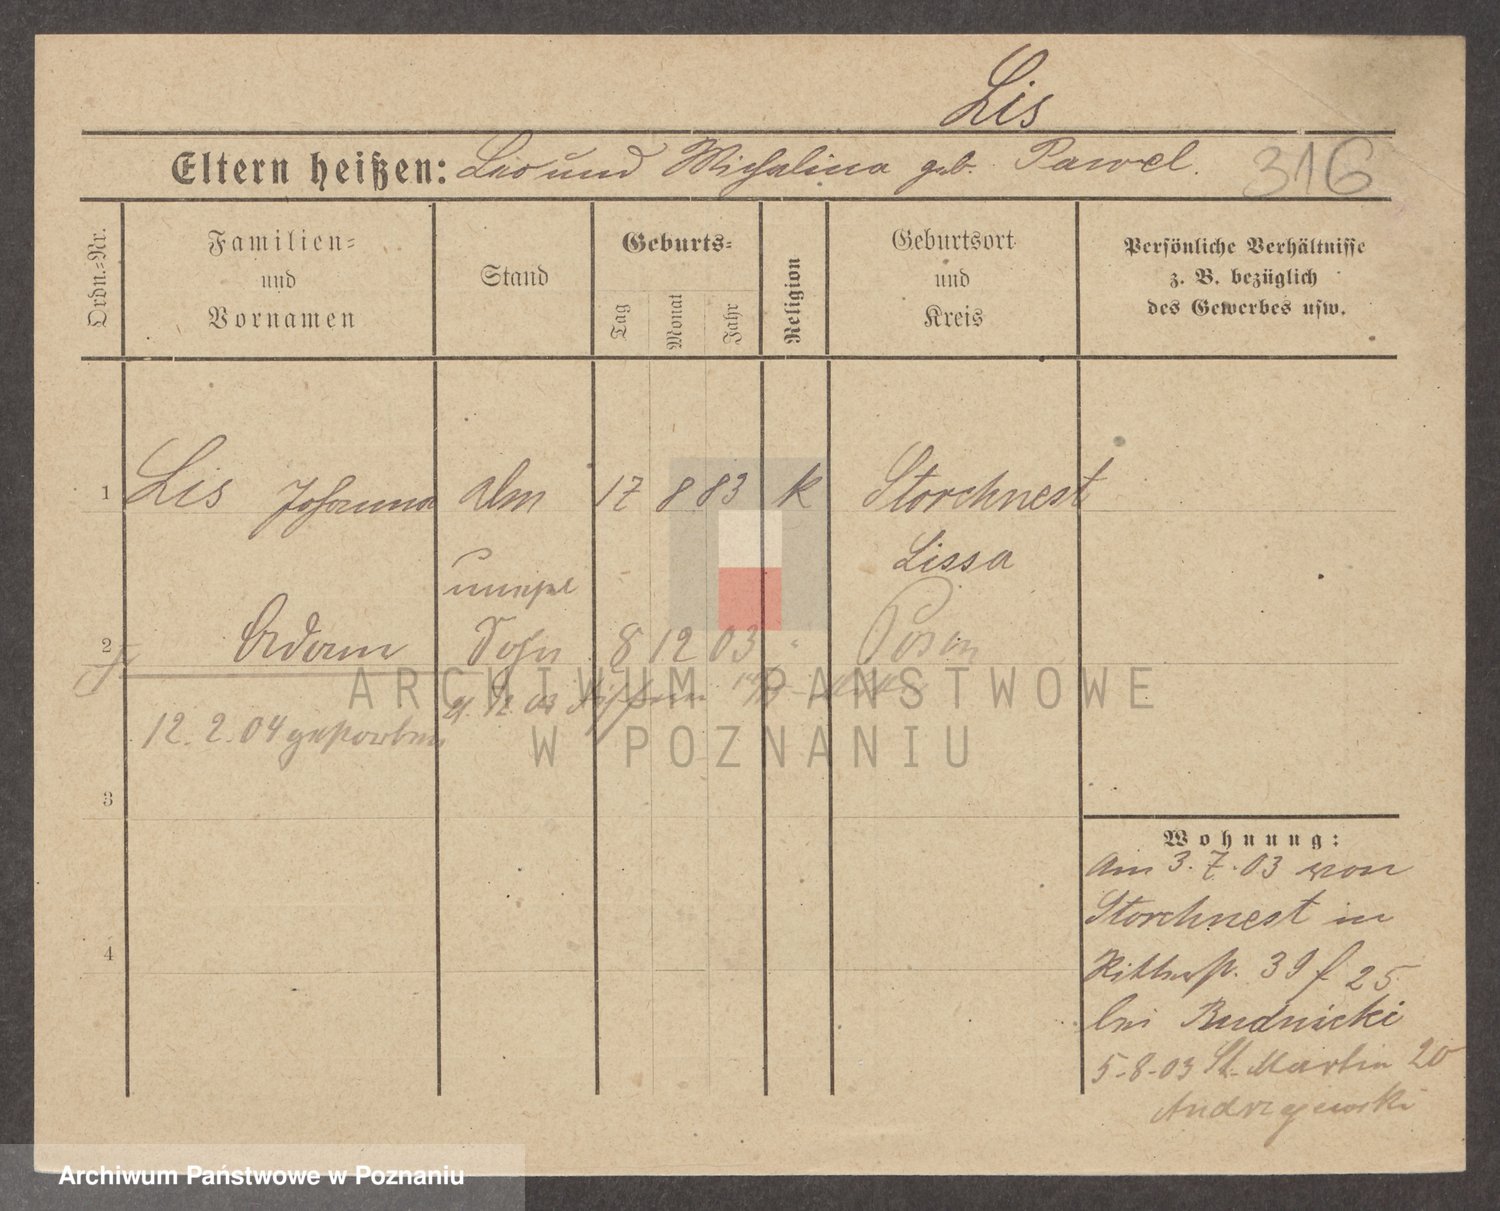 Lis
Eltern heißen: Leo und Michalina geb. Pawel.
316
Ordn.-Nr.
Familien-
und
Vornamen
Stand
Geburts-
Tag
Monat
Jahr
Religion
Geburtsort
und
Kreis
Persönliche Verhältnisse
z. B. bezüglich
des Gewerbes usw.
1 Lis Johanna 17 8 83 k Storchnest
Lissa
unehel
2 Adam Sohn 8 12 03 Posen
12. 2. 04 gestorben
3
4
Wohnung:
Am 3. 7. 03 von
Storchnest in
Ritterst. 39 f 25
bei Budnicki
5-8-03 St. Martin 20
Andrzejewski
ARCHIWUM PAŃSTWOWE
W POZNANIU
Archiwum Państwowe w Poznaniu